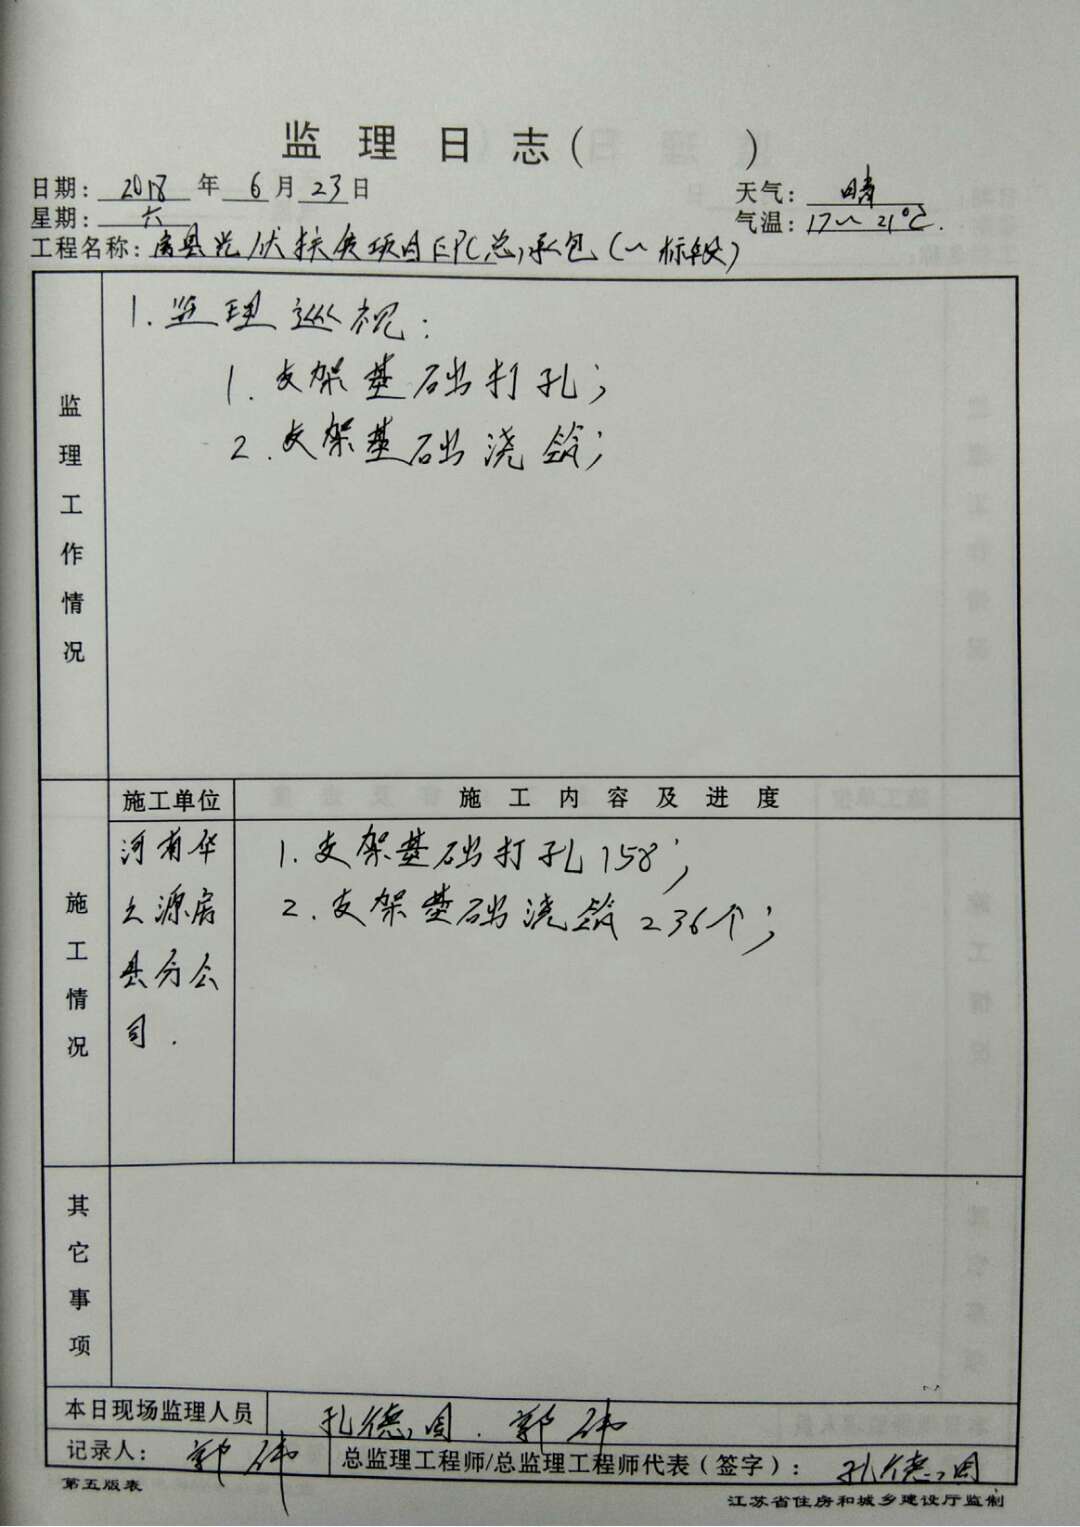 监理日志(          )
日期: 2018 年 6 月 23 日 天气: 晴
星期: 六 气温: 17~21℃.
工程名称: 房县光伏扶贫项目EPC总承包(一标段)
监理工作情况
1. 监理巡视:
1. 支架基础打孔;
2. 支架基础浇筑;
施工情况
施工单位 施工内容及进度
河南华
源房
县分公
司.
1. 支架基础打孔158;
2. 支架基础浇筑236个;
其它事项
本日现场监理人员 孔德国. 郭伟
记录人: 郭伟 总监理工程师/总监理工程师代表(签字): 孔德国
第五版表 江苏省住房和城乡建设厅监制